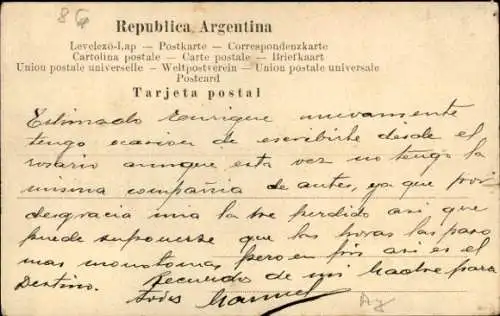 86
Republica Argentina
Levelezö-Lap — Postkarte — Correspondenzkarte
Cartolina postale — Carte postale — Briefkaart
Union postale universelle — Weltpostverein — Union postale universale
Postcard
Tarjeta postal
Estimado Enrique nuevamente
tengo ocasion de escribirte desde el
rosario aunque esta vez no tengo la
misma compañia de antes, ya que por
desgracia mia la he perdido asi que
puede suponerse que las horas las paso
mas monotomas pero en fin asi es el
Destino. Recuerdo de mi Madre para
todos Manuel
Ay